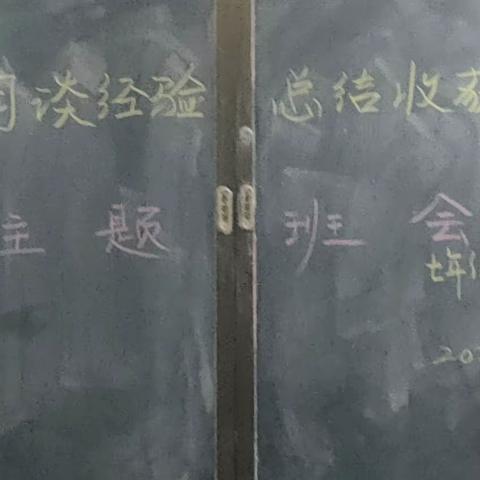 谈经验 总结收获
主题 班会
七年
20